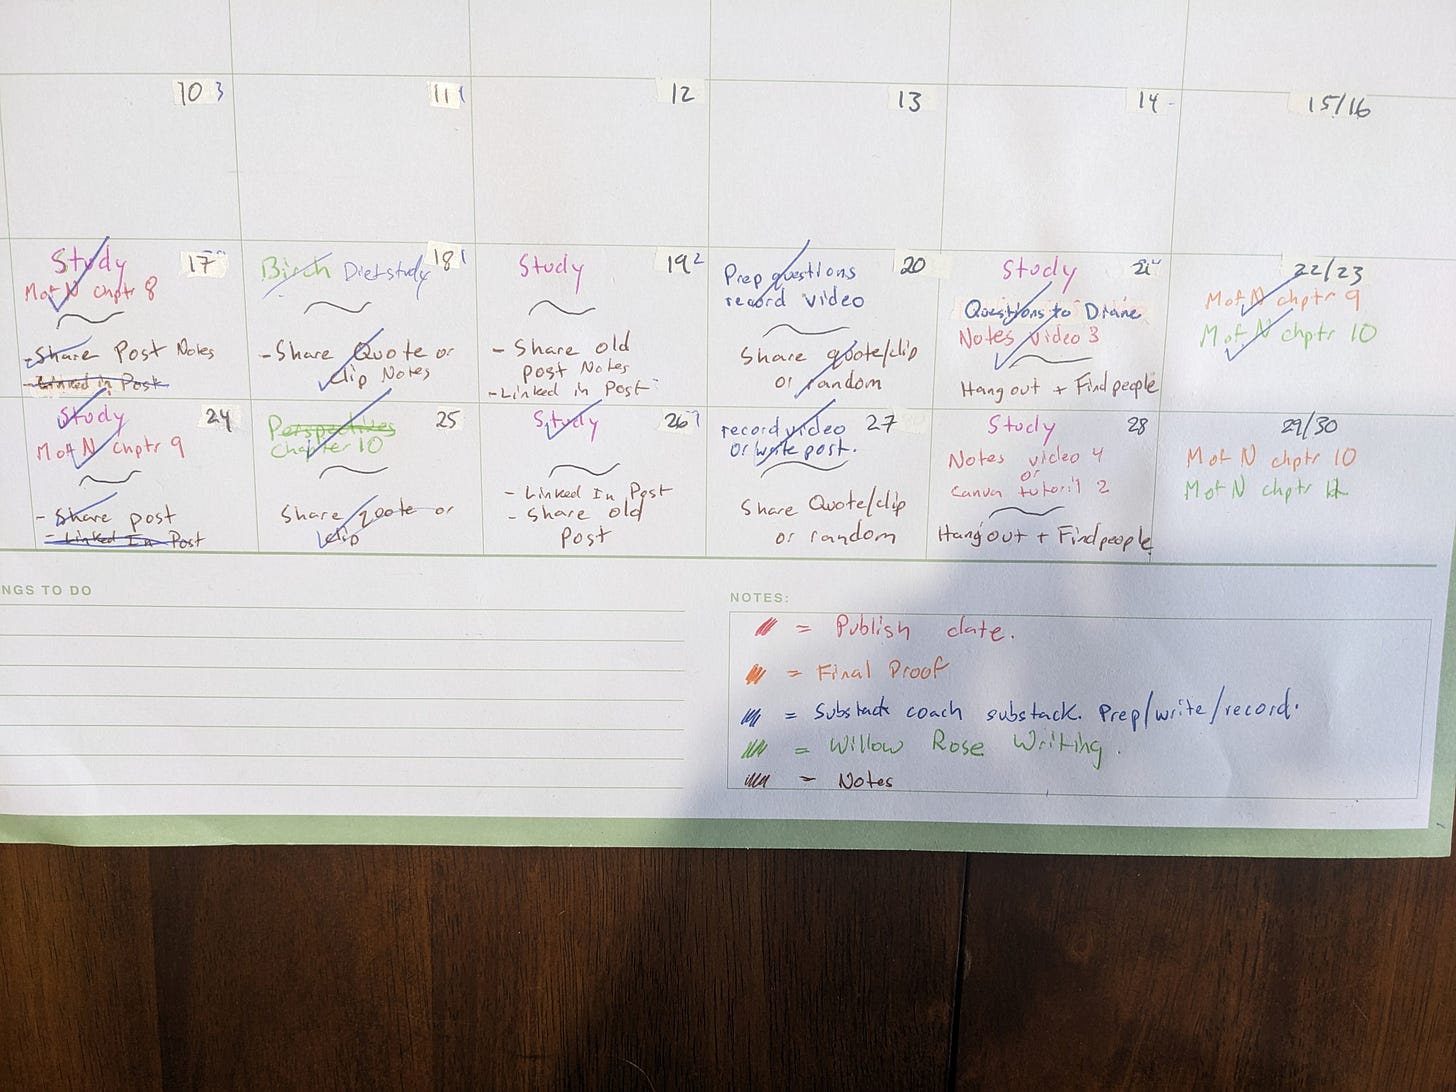 10
11
12
13
14
15/16
17
Study
MofN chptr 8
-Share Post Notes
-Linked in Post
18
Birch Diet study
-Share Quote or
clip Notes
19
Study
- Share old
post Notes
-Linked in Post
20
Prep questions
record video
Share quote/clip
or random
21
Study
Questions to Diane
Notes video 3
Hang out + Find people
22/23
M of N chptr 9
M of N chptr 10
24
Study
M of N chptr 9
- Share post
- Linked In Post
25
Perspectives
Chapter 10
Share quote or
clip
26
Study
- Linked In Post
- Share old
Post
27
record video
or write post.
Share Quote/clip
or random
28
Study
Notes video 4
or
Canva tutoril 2
Hang out + Find people
29/30
M of N chptr 10
M of N chptr
NGS TO DO
NOTES:
= Publish date.
= Final Proof
= Substack coach substack. Prep/write/record.
= Willow Rose Writing.
= Notes